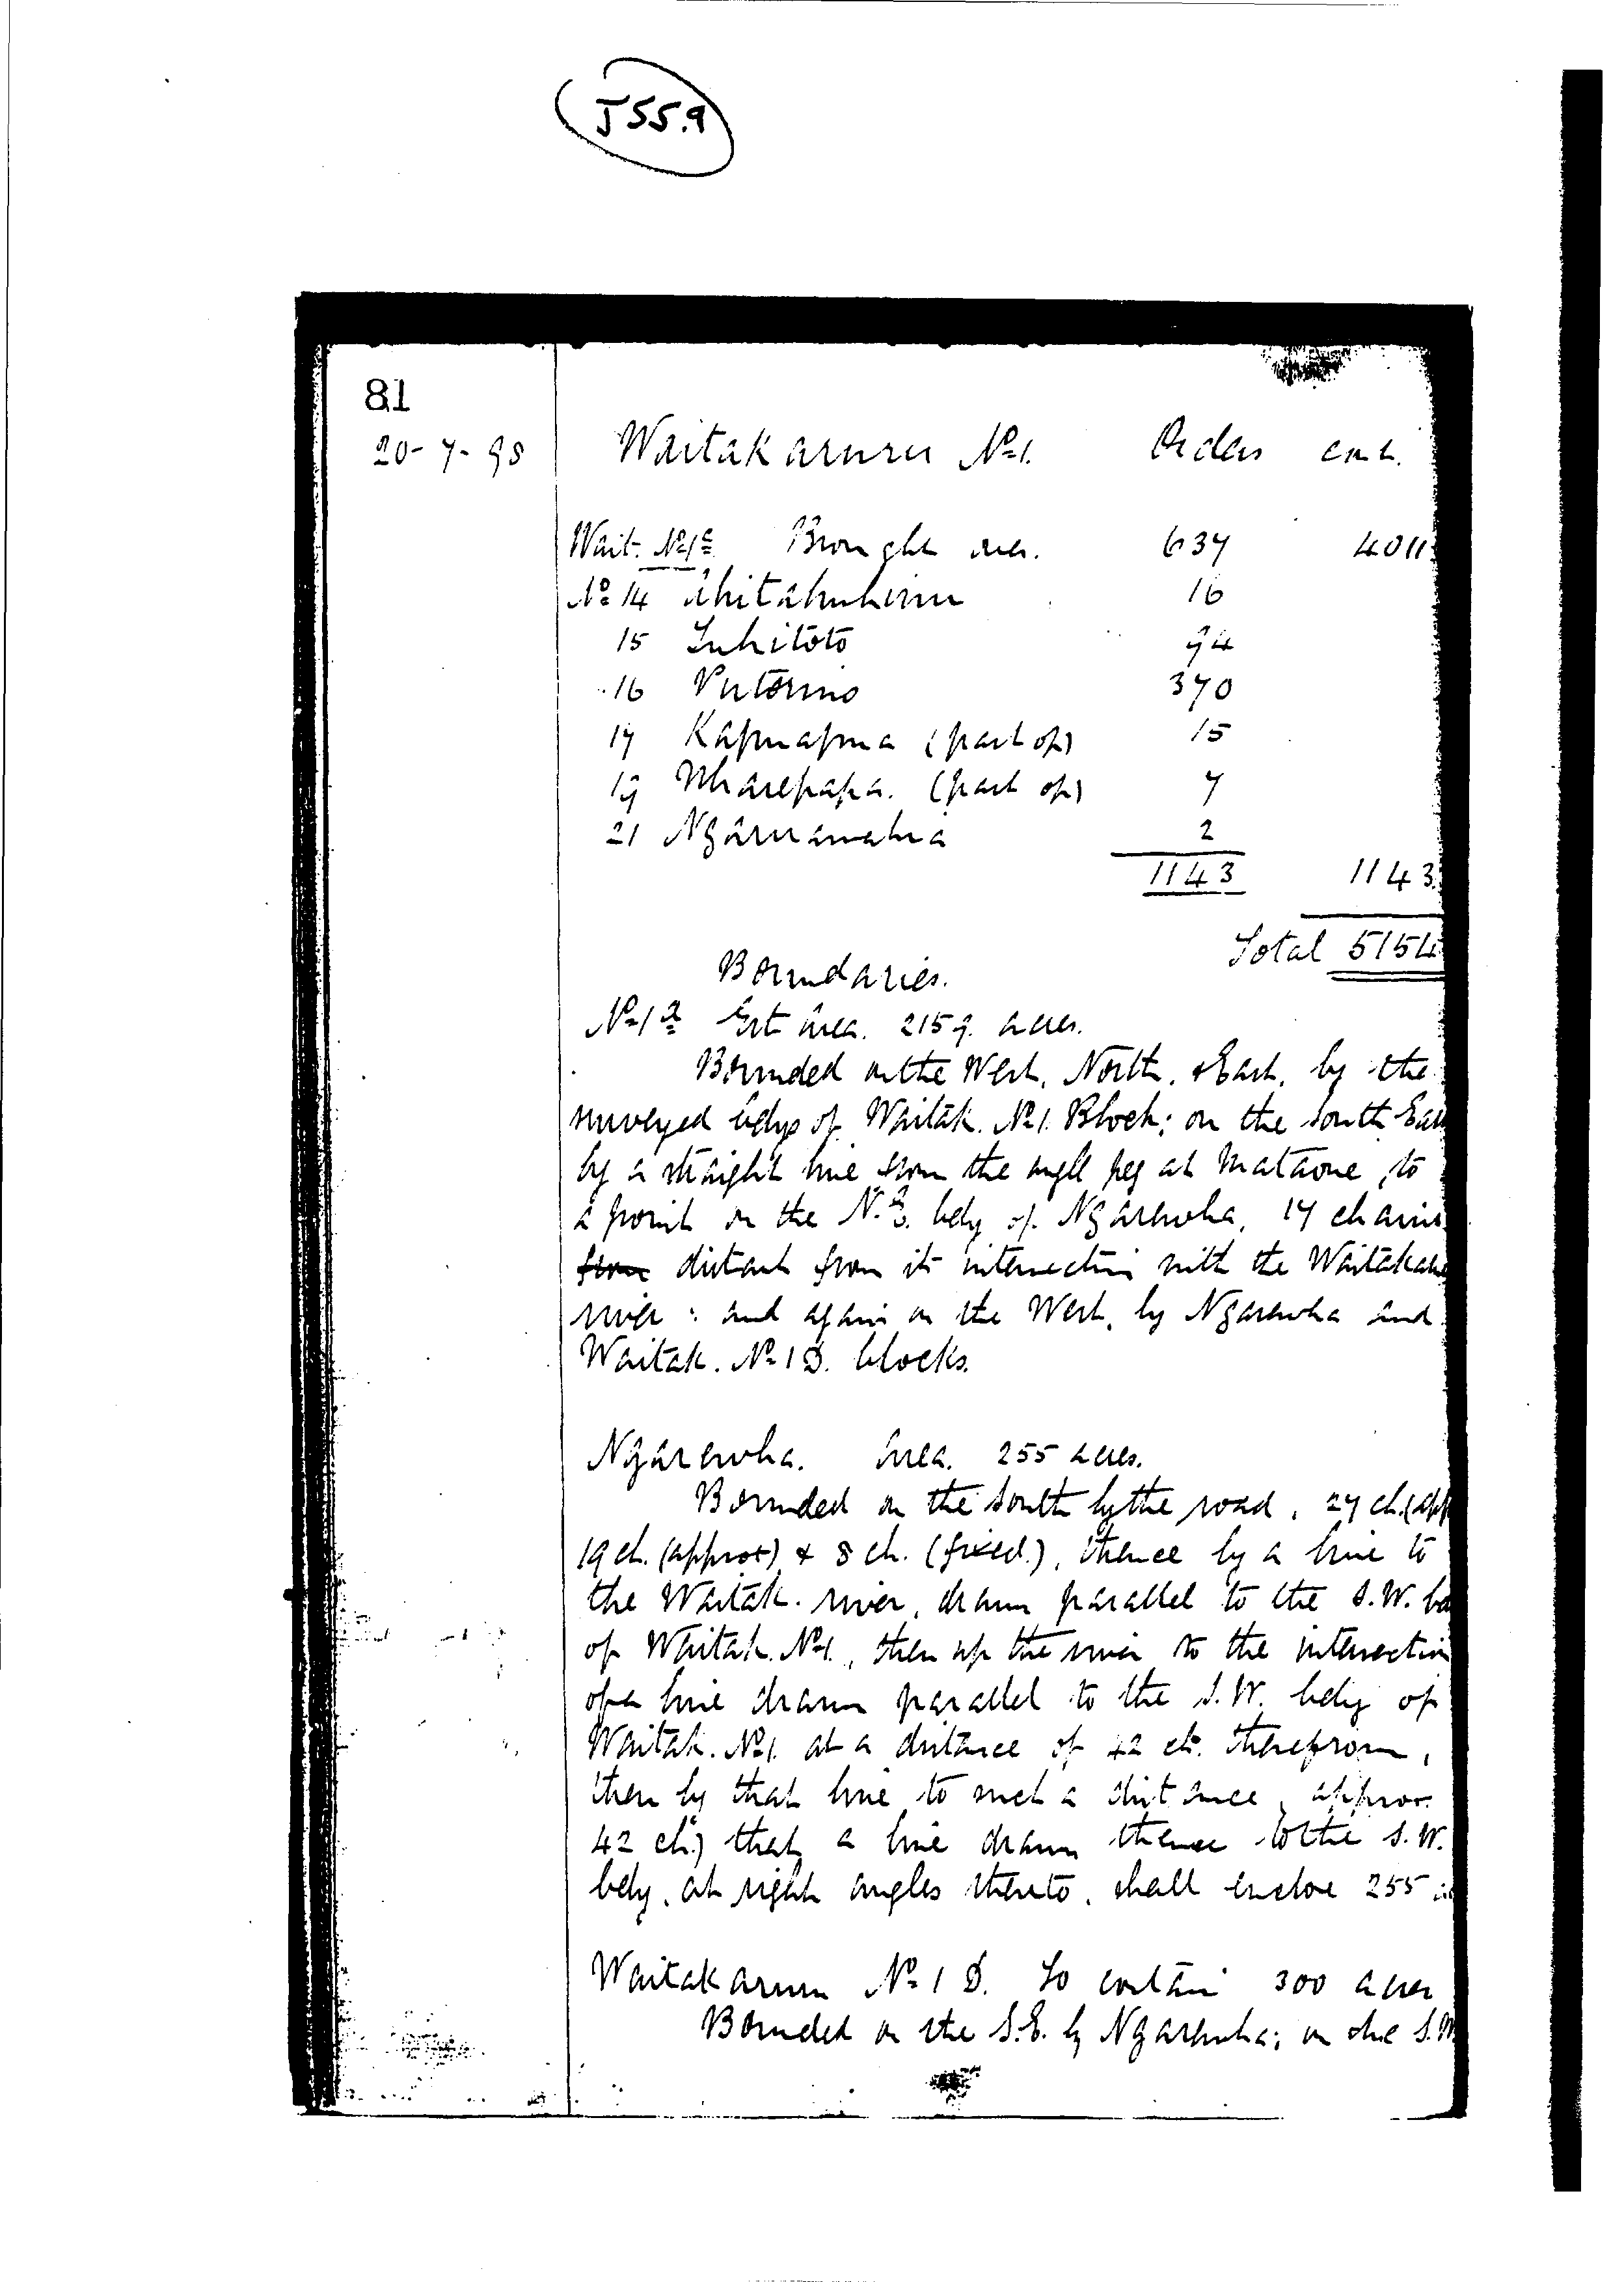 J55.9
81
20-7-98
Waitakaruru No 1. Orders cont.
Wait. No 1C Brought over. 637 4011
No 14 16
15 Tuhitoto 94
16 Putorino 370
17 Kapuapua (part of) 15
19 Wharepapa. (part of) 7
21 Ngaruawahia 2
1143 1143
Total 5154
Boundaries.
No 1 Est area. 2159. acres.
Bounded on the West, North, & East, by the
surveyed bdys of Waitak. No 1. Block; on the South Eas
by a straight line from the angle peg at Mataove, to
a point on the N.E. bdy of Ngarewha, 17 chains
from distant from its intersection with the Waitakaru
river: and again on the West, by Ngarewha and
Waitak. No 1 D. blocks.
Ngarewha. Area. 255 acres.
Bounded on the South by the road, 27 ch. (app
19 ch. (approx) & 8 ch. (fixed.), thence by a line to
the Waitak. river, drawn parallel to the S.W. bd
of Waitak. No 1., then up the river to the intersection
of a line drawn parallel to the S.W. bdy of
Waitak. No 1. at a distance of 42 ch. therefrom,
then by that line to such a distance, approx.
42 ch.) that a line drawn thence to the S.W.
bdy, at right angles thereto, shall enclose 255 a
Waitakaruru No 1 D. To contain 300 acres
Bounded on the S.E. by Ngarewha; on the S.W